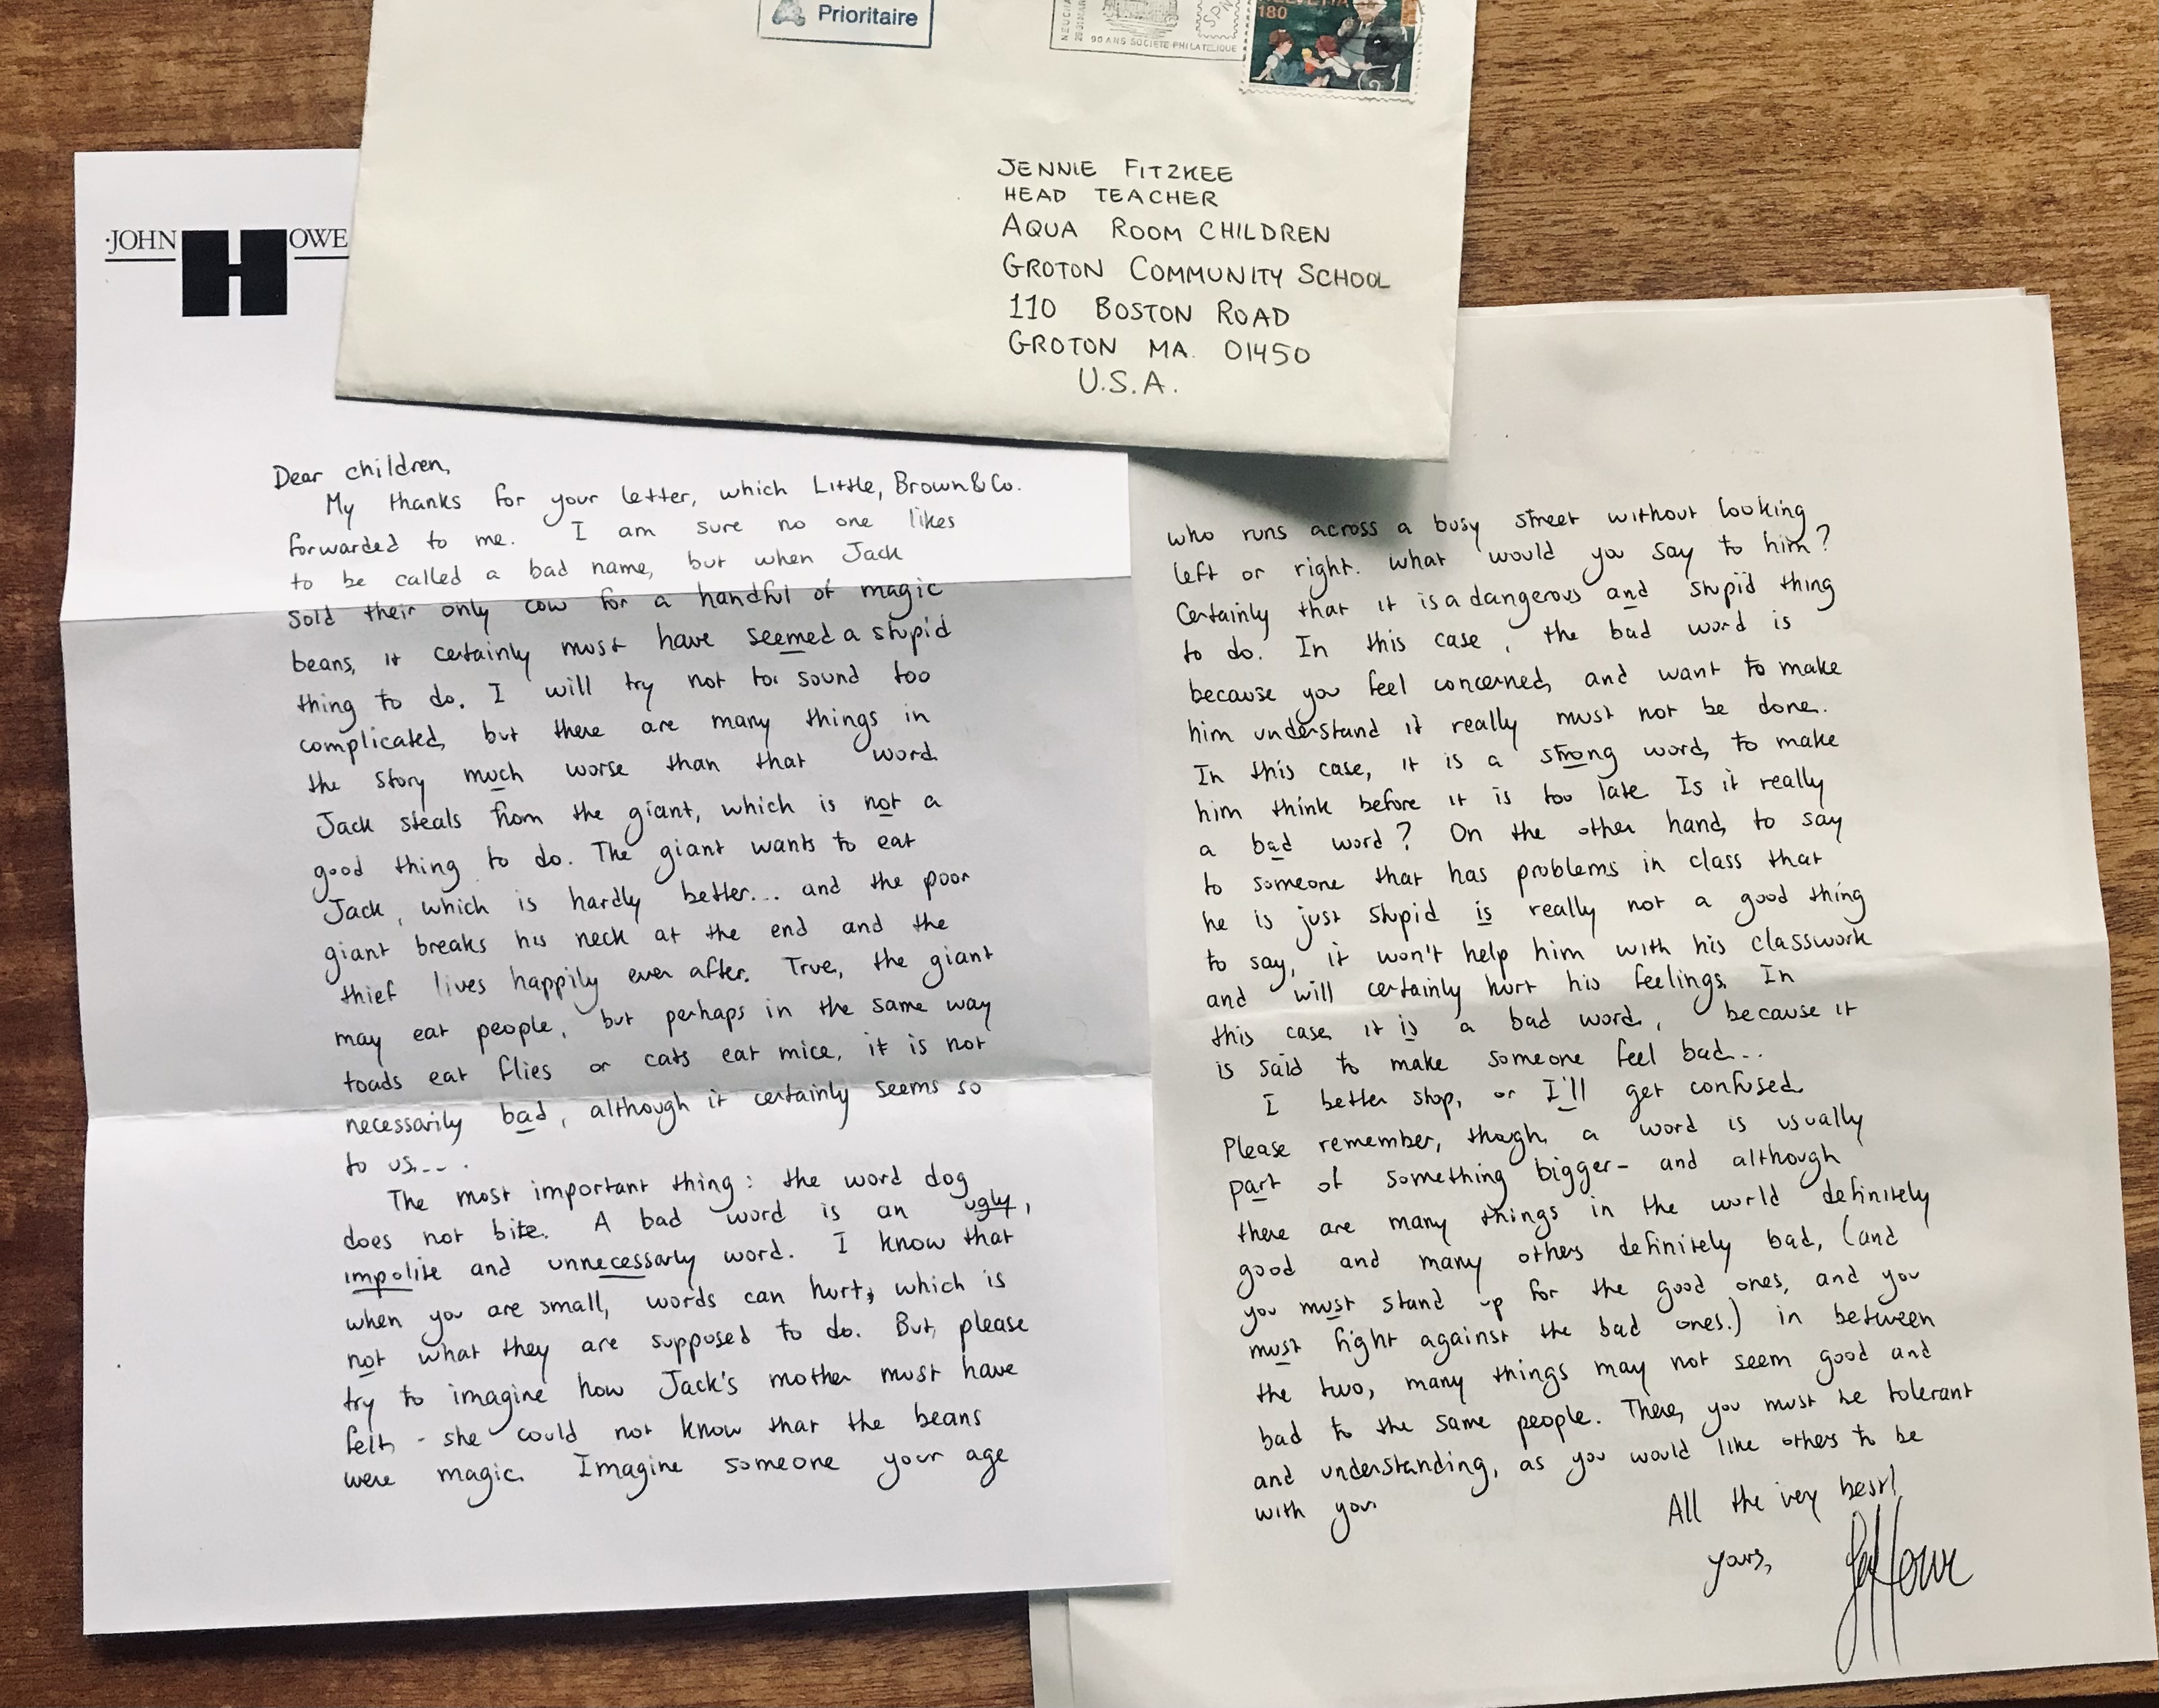 Prioritaire
90 ANS SOCIETE PHILATELIQUE
HELVETIA
180
JENNIE FITZKEE
HEAD TEACHER
AQUA ROOM CHILDREN
GROTON COMMUNITY SCHOOL
110 BOSTON ROAD
GROTON MA. 01450
U.S.A.
·JOHN HOWE
Dear children,
My thanks for your letter, which Little, Brown & Co.
forwarded to me. I am sure no one likes
to be called a bad name, but when Jack
sold their only cow for a handful of magic
beans, it certainly must have seemed a stupid
thing to do. I will try not to sound too
complicated, but there are many things in
the story much worse than that word.
Jack steals from the giant, which is not a
good thing to do. The giant wants to eat
Jack, which is hardly better... and the poor
giant breaks his neck at the end and the
thief lives happily ever after. True, the giant
may eat people, but perhaps in the same way
toads eat flies or cats eat mice, it is not
necessarily bad, although it certainly seems so
to us....
The most important thing: the word dog
does not bite. A bad word is an ugly,
impolite and unnecessarly word. I know that
when you are small, words can hurt, which is
not what they are supposed to do. But, please
try to imagine how Jack's mother must have
felt, - she could not know that the beans
were magic. Imagine someone your age
who runs across a busy street without looking
left or right. What would you say to him?
Certainly that it is a dangerous and stupid thing
to do. In this case, the bad word is
because you feel concerned, and want to make
him understand it really must not be done.
In this case, it is a strong word, to make
him think before it is too late. Is it really
a bad word? On the other hand, to say
to someone that has problems in class that
he is just stupid is really not a good thing
to say, it won't help him with his classwork
and will certainly hurt his feelings. In
this case it is a bad word, because it
is said to make someone feel bad...
I better stop, or I'll get confused.
Please remember, though, a word is usually
part of something bigger - and although
there are many things in the world definitely
good and many others definitely bad, (and
you must stand up for the good ones, and you
must fight against the bad ones.) in between
the two, many things may not seem good and
bad to the same people. There, you must be tolerant
and understanding, as you would like others to be
with you.
All the very best!
yours,
J Howe